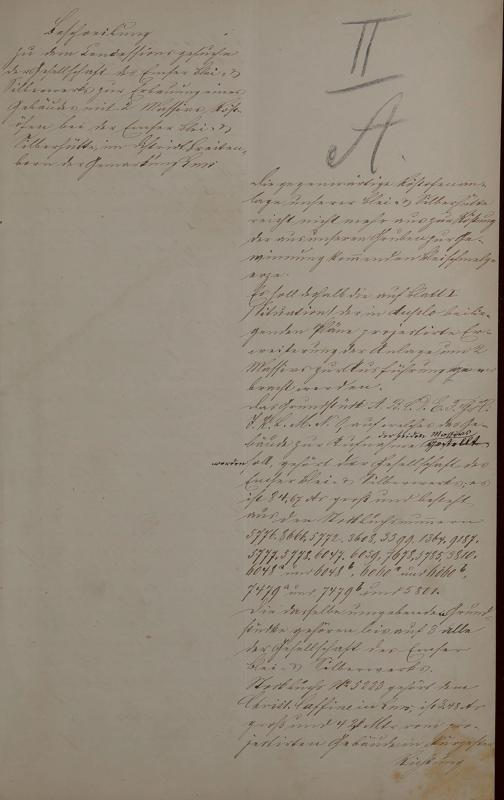 Beschreibung
zu dem Concessionsgesuche
der Gesellschaft des Emser Blei- &
Silberwerks zur Erbauung eines
Gebäudes mit 2 Massivs Röst-
öfen bei der Emser Blei- &
Silberhütte im Distrikt Breiten-
born der Gemarkung Ems
II
A.
Die gegenwärtige Röstofenan-
lage unserer Blei- & Silberhütte
reicht nicht mehr aus zur Röstung
der aus unseren Gruben zur Ge-
winnung kommenden Bleischmelz
erze.
Es soll deshalb die auf Blatt I
Situation der in beilie-
genden Pläne projectirte Er-
weiterung der Anlage um 2
Massivs zur Ausführung ge-
bracht werden.
Das Grundstück A. B. C. D. E. F. G. H.
J. K. L. M. N. O, auf welches das Ge-
bäude zur Aufnahme der beiden Massivs gestellt
werden soll, gehört der Gesellschaft des
Emser Blei- & Silberwerks; es
ist 84,67 Ar groß und besteht
aus den Stockbuchsnummern
5776. 8666. 5772. 3608. 3399. 1364. 9187.
5777. 5778. 6047. 6059. 7678. 5785. 5810.
6048 a und 6048 b, 6060 a und 6060 b,
7479 a und 7479 b und 5801.
Die dasselbe umgebenden Grund-
stücke gehören bis auf 3 alle
der Gesellschaft des Emser
Blei- & Silberwerks.
Stockbuchs No 5233 gehört dem
Christ. in Ems, ist 3,48 Ar
groß und 42 Mtr vom pro-
jectirten Gebäude in kürzester
Richtung